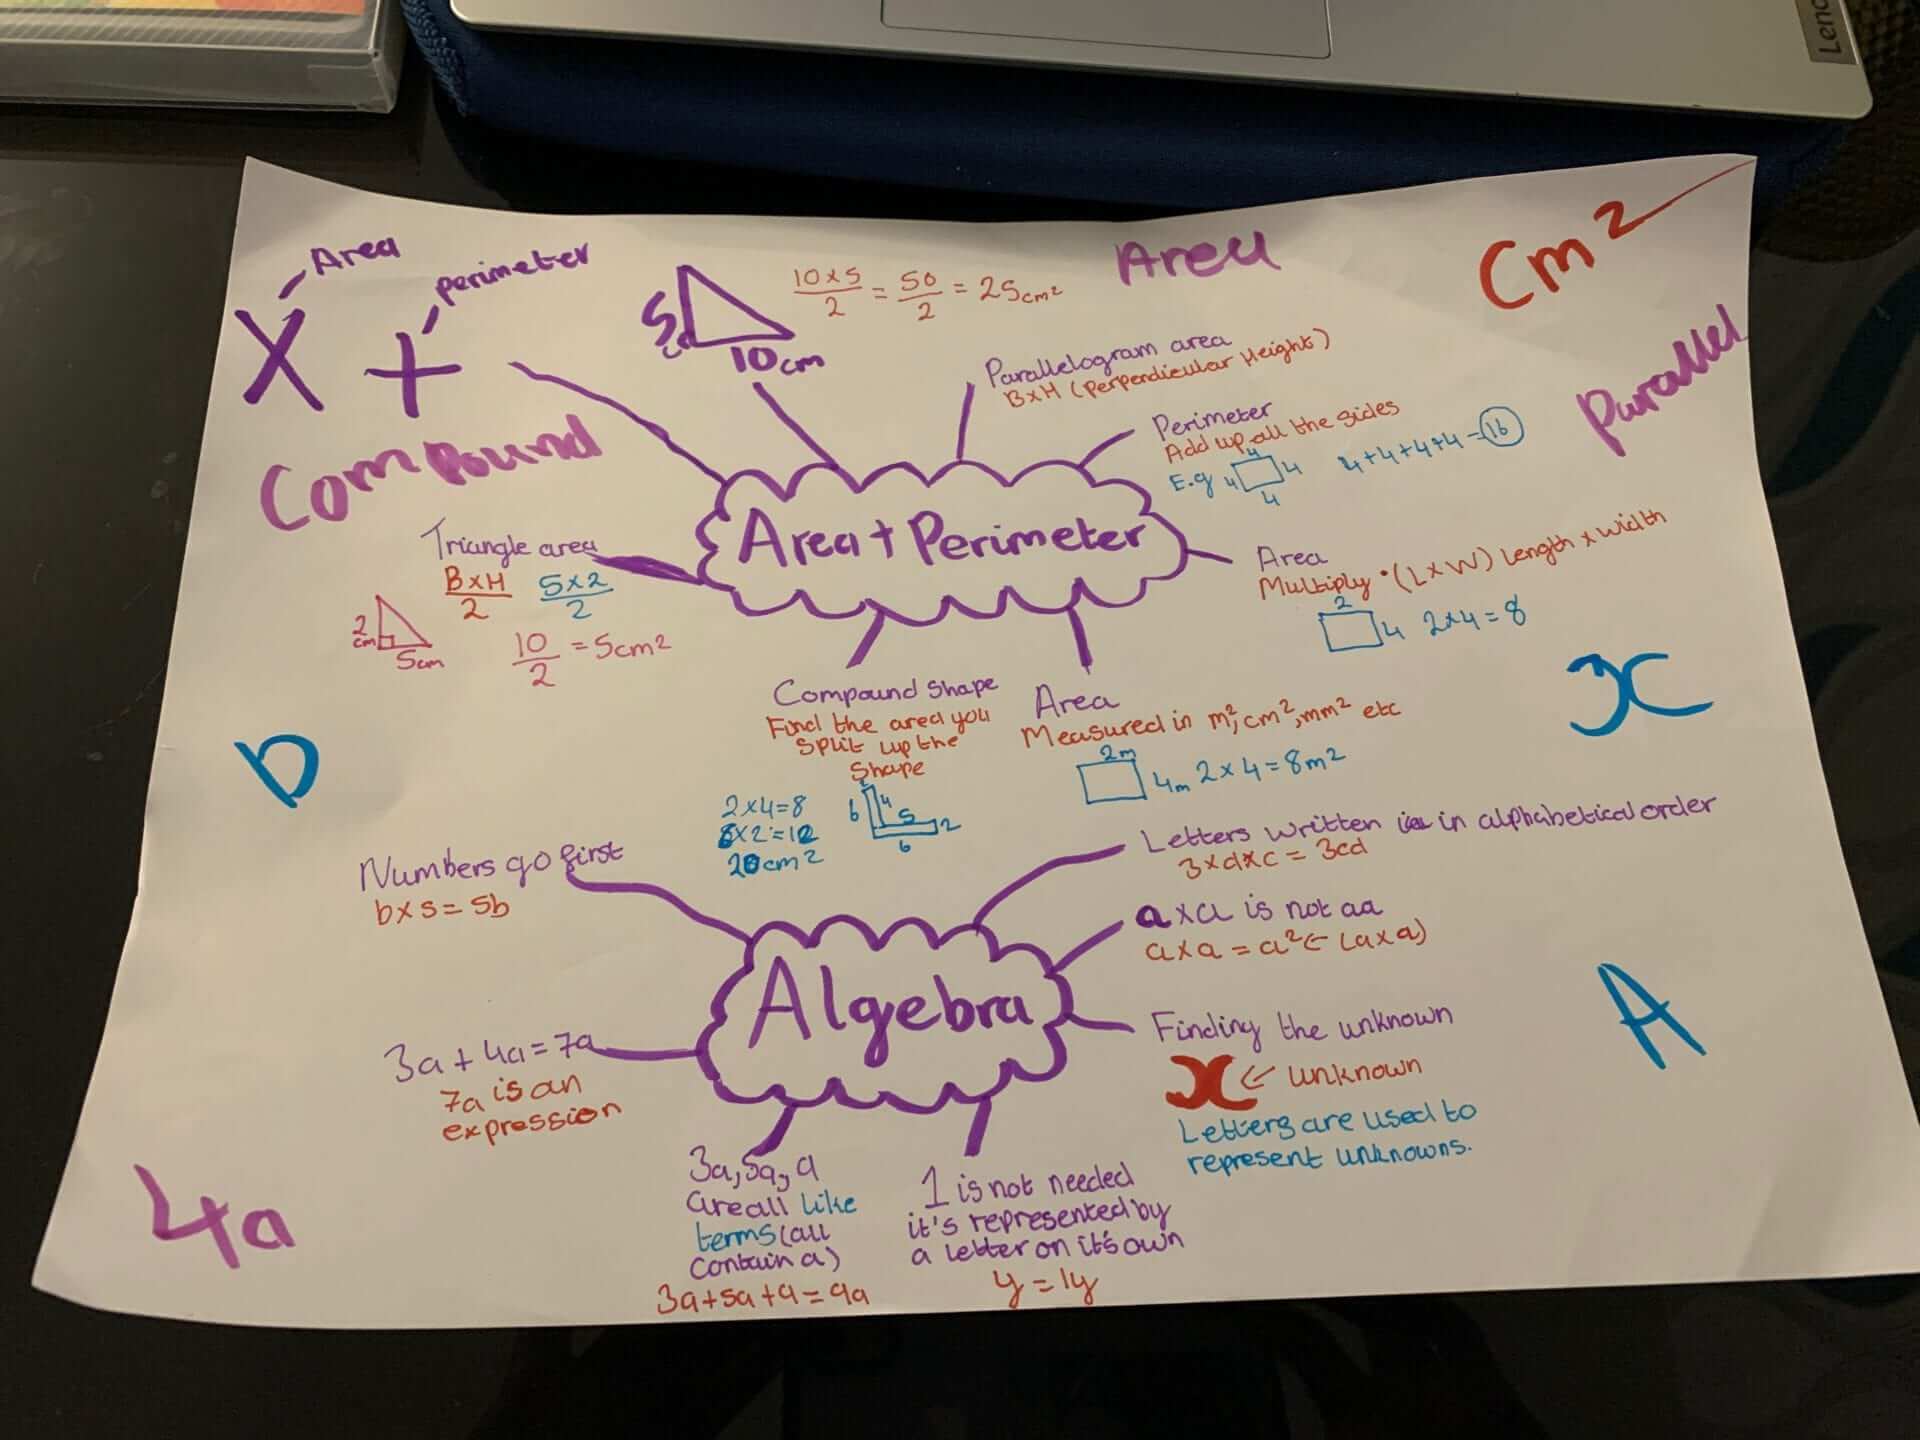 Leno
Area
perimeter
X +
Compound
5cm
10cm
10x5/2 = 50/2 = 25cm²
Area
Cm²
Parallel
Parallelogram area
BxH (perpendicular Height)
Perimeter
Add up all the sides
E.g 4 4 4 4 4+4+4+4=16
Area + Perimeter
Triangle area
BxH/2 5x2/2
2cm
5cm
10/2 = 5cm²
Area
Multiply • (LxW) length x width
2
4 2x4=8
Compound shape
Find the area you
split up the
shape
2x4=8
6x2=12
20cm²
6 4 5 2
6
Area
Measured in m², cm², mm² etc
2m
4m 2x4=8m²
x
D
Numbers go first
bx5=5b
Letters written in in alphabetical order
3xdxc = 3cd
axa is not aa
axa = a² ← (axa)
Algebra
3a + 4a = 7a
7a is an
expression
Finding the unknown
x ← unknown
Letters are used to
represent unknowns.
A
4a
3a, 5a, a
are all like
terms (all
contain a)
3a+5a+a=9a
1 is not needed
it's represented by
a letter on it's own
y = 1y